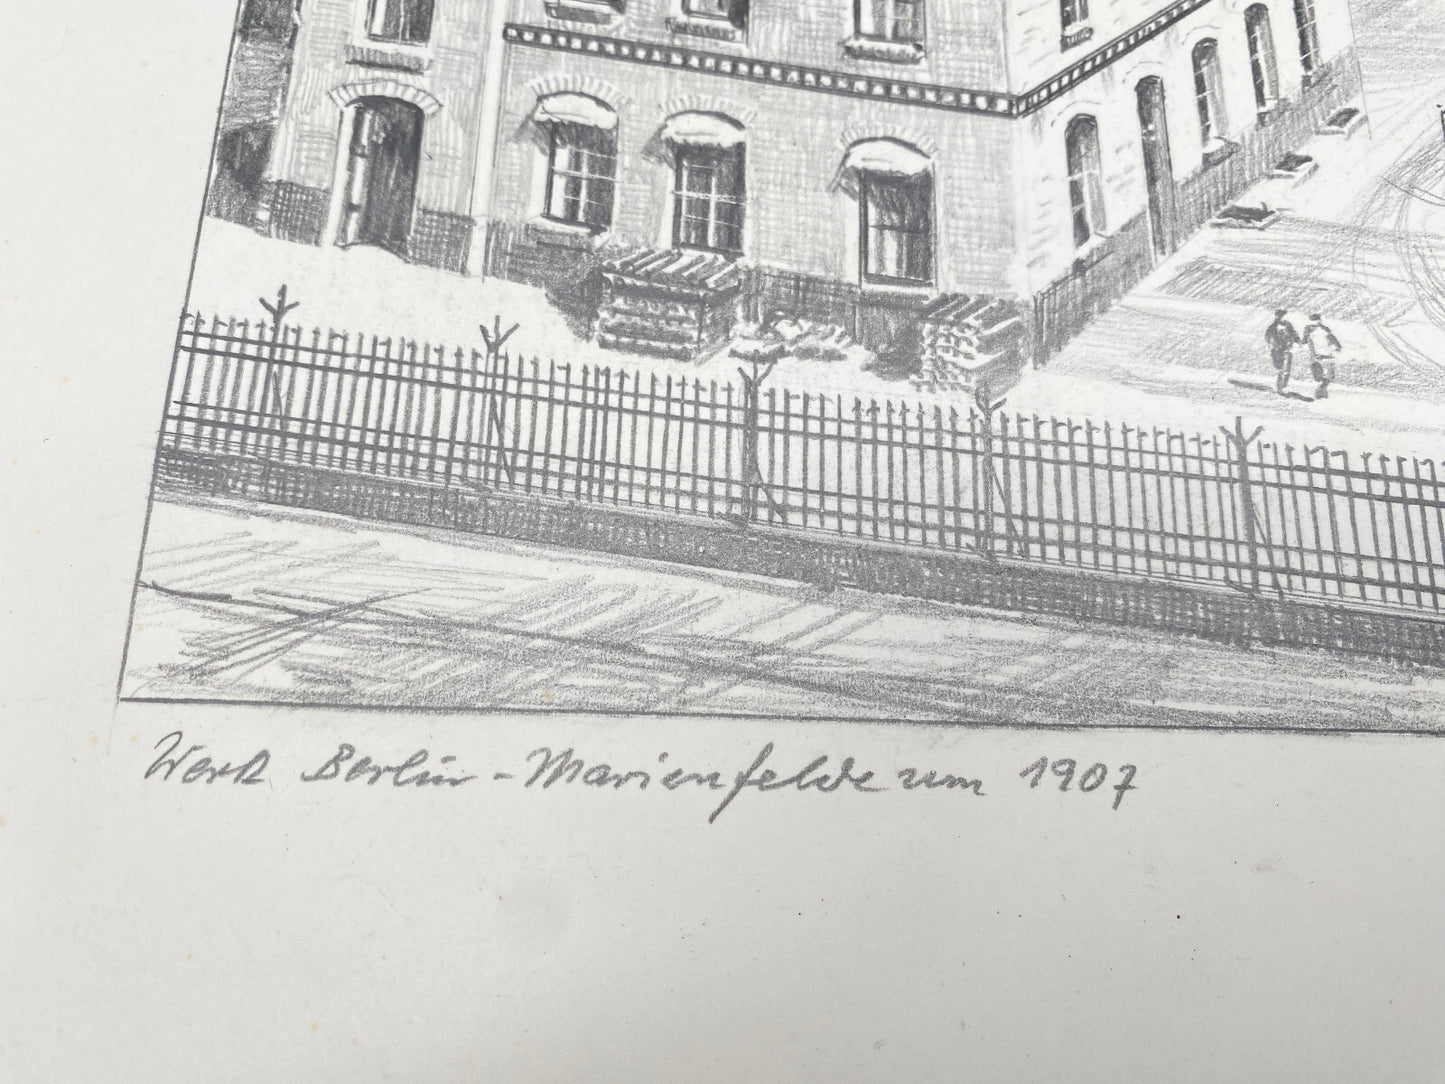 Werk Berlin-Marienfelde um 1907